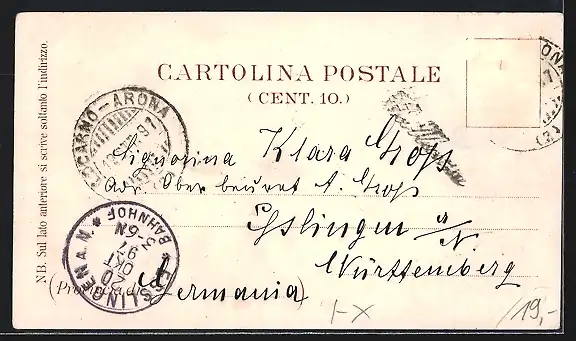 N.B. Sul lato anteriore si scrive soltanto l'indirizzo.
CARTOLINA POSTALE
(CENT. 10.)
LOCARNO-ARONA
97
Signorina Klara Groß
Adr. Oberbaurat A. Groß
Esslingen a/N.
Württemberg
(Provincia di Germania)
ESSLINGEN A.N. * BAHNHOF *
20
OKT
97
5-6N
I-X
/19,-